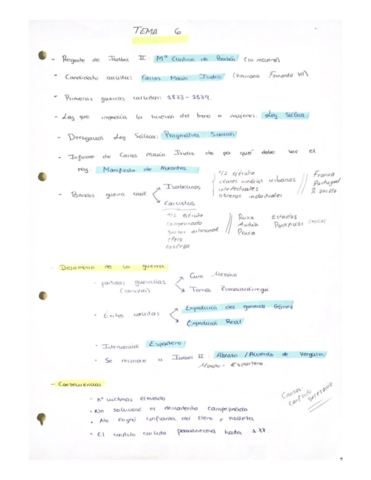 TEMA 6
- Regente de Isabel II: Mª Cristina de Borbón (su madre)
- Candidato carlista: Carlos María Isidro (hermano Fernando VII)
- Primera guerra carlista: 1833-1839.
- Ley que impedía la sucesión del trono a mujeres: Ley Sálica
- Derogación Ley Sálica: Pragmática Sanción
- Informe de Carlos María Isidro de por qué debe ser el
rey: Manifiesto de Abrantes
- Bandos guerra civil
Isabelinos
1/2 ejército
clases medias urbanas
intelectuales
obreros industriales
Francia
Portugal
Carlistas
1/2 ejército
campesinado
sector artesanal
clero
Rusia
Austria
Prusia
Estados
Pontificios
- Desarrollo de la guerra
· partidas guerrillas
(carlistas)
Cura Merino
Tomás Zumalacárregui
· Éxitos carlistas
Expedición del general Gómez
Expedición Real
· Intervención Espartero
· Se reconoce a Isabel II: Abrazo / Acuerdo de Vergara
Maroto - Espartero
- Consecuencias
· nº víctimas elevado
· No soluciona el descontento campesinado
· No logró confianza del clero y nobleza
· El conflicto carlista permanecerá hasta s. XX.